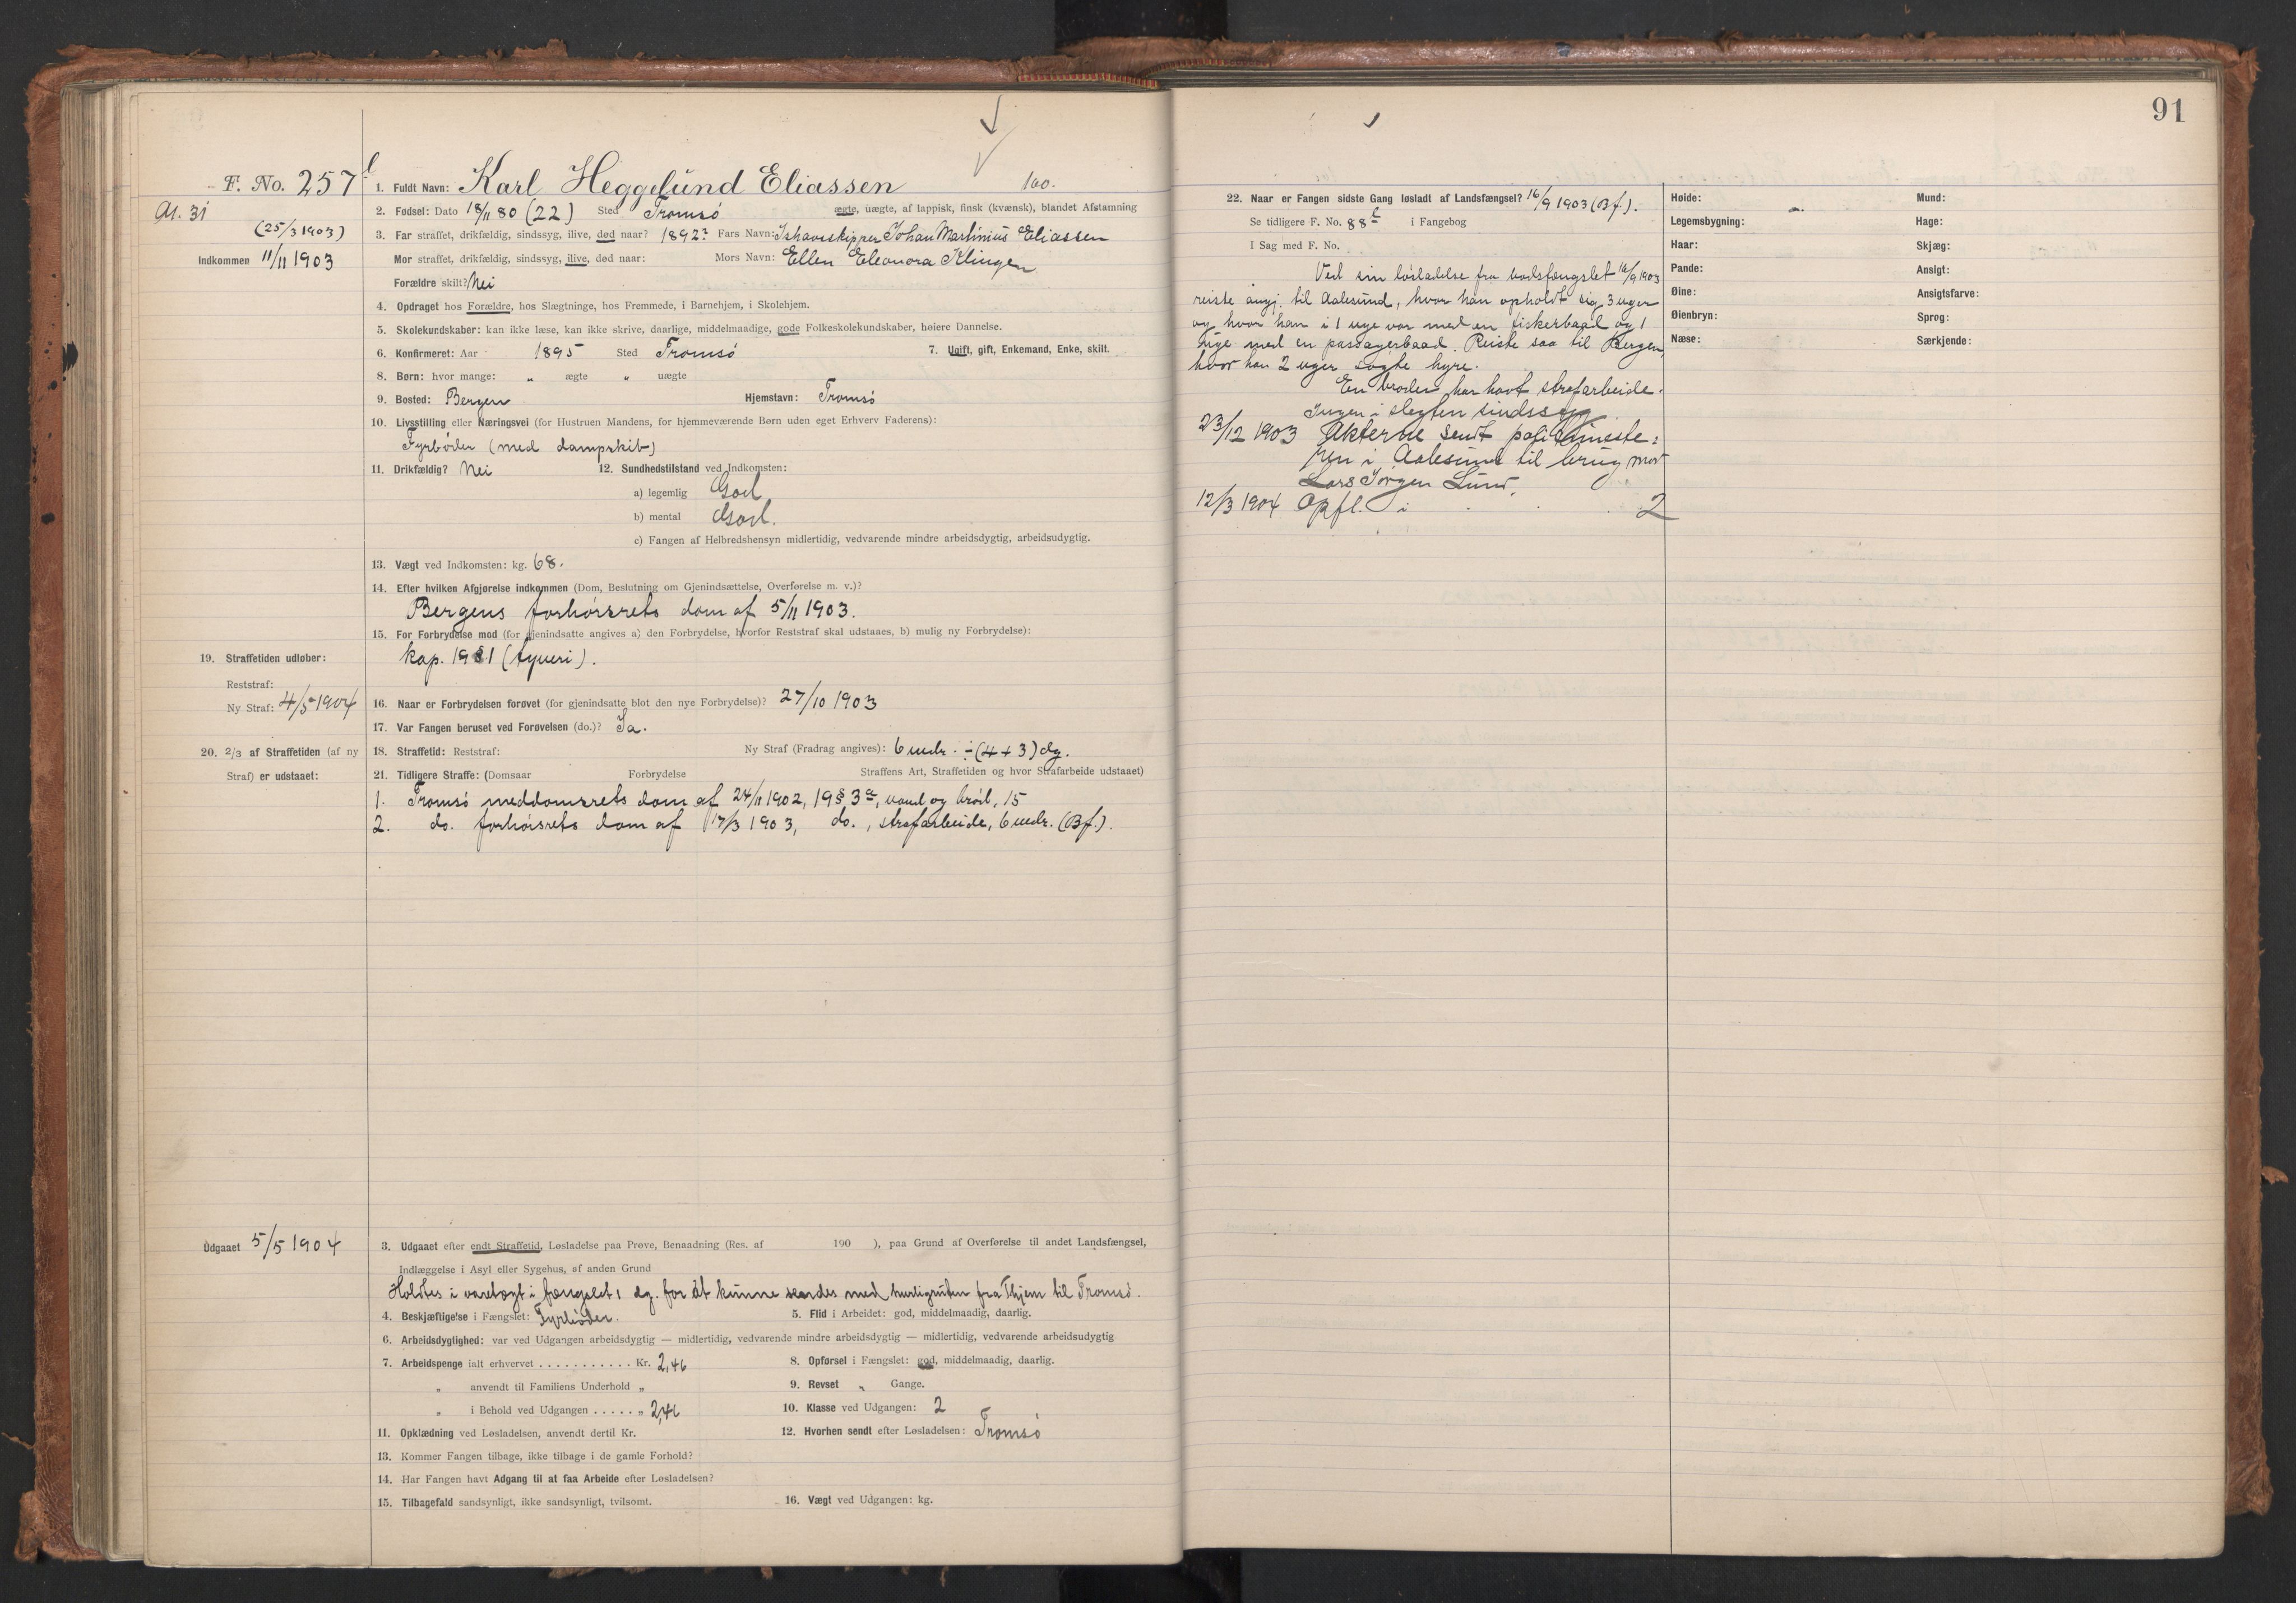 91
F. No. 257 l
1. Fuldt Navn: Karl Heggelund Eliassen 100.
At. 31
2. Fødsel: Dato 18/11 80 (22) Sted Tromsø ægte, uægte, af lappisk, finsk (kvænsk), blandet Afstamning
(25/3 1903)
3. Far straffet, drikfældig, sindssyg, ilive, død naar? 1892? Fars Navn: Ishavsskipper Johan Martinius Eliassen
Indkommen 11/11 1903
Mor straffet, drikfældig, sindssyg, ilive, død naar: Mors Navn: Ellen Eleonora Klingen
Forældre skilt? Nei
4. Opdraget hos Forældre, hos Slægtninge, hos Fremmede, i Barnehjem, i Skolehjem.
5. Skolekundskaber: kan ikke læse, kan ikke skrive, daarlige, middelmaadige, gode Folkeskolekundskaber, høiere Dannelse.
6. Konfirmeret: Aar 1895 Sted Tromsø 7. Ugift, gift, Enkemand, Enke, skilt.
8. Børn: hvor mange: „ ægte „ uægte
9. Bosted: Bergen Hjemstavn: Tromsø
10. Livsstilling eller Næringsvei (for Hustruen Mandens, for hjemmeværende Børn uden eget Erhverv Faderens):
Fyrbøder (med dampskib)
11. Drikfældig? Nei 12. Sundhedstilstand ved Indkomsten:
a) legemlig God
b) mental God.
c) Fangen af Helbredshensyn midlertidig, vedvarende mindre arbeidsdygtig, arbeidsudygtig.
13. Vægt ved Indkomsten: kg. 68.
14. Efter hvilken Afgjørelse indkommen (Dom, Beslutning om Gjenindsættelse, Overførelse m. v.)?
Bergens forhørsrets dom af 5/11 1903.
15. For Forbrydelse mod (for gjenindsatte angives a) den Forbrydelse, hvorfor Reststraf skal udstaaes, b) mulig ny Forbrydelse):
kap. 19 § 1 (tyveri).
19. Straffetiden udløber:
Reststraf:
Ny Straf: 4/5 1904
16. Naar er Forbrydelsen forøvet (for gjenindsatte blot den nye Forbrydelse)? 27/10 1903
17. Var Fangen beruset ved Forøvelsen (do.)? Ja.
20. 2/3 af Straffetiden (af ny
Straf) er udstaaet:
18. Straffetid: Reststraf: Ny Straf (Fradrag angives): 6 mdr. ÷ (4 + 3) dg.
21. Tidligere Straffe: (Domsaar Forbrydelse Straffens Art, Straffetiden og hvor Strafarbeide udstaaet)
1. Tromsø meddomsrets dom af 24/11 1902, 19 § 3 a, vand og brød, 15
2. do. forhørsrets dom af 17/3 1903, do., strafarbeide, 6 mdr. (Bf.).
Udgaaet 5/5 1904
3. Udgaaet efter endt Straffetid, Løsladelse paa Prøve, Benaadning (Res. af 190 ), paa Grund af Overførelse til andet Landsfængsel,
Indlæggelse i Asyl eller Sygehus, af anden Grund
Holdtes i varetægt i fængslet 1 dg. for at kunne sendes med hurtigruten fra Thjem til Tromsø.
4. Beskjæftigelse i Fængslet: Fyrbøder. 5. Flid i Arbeidet: god, middelmaadig, daarlig.
6. Arbeidsdyglighed: var ved Udgangen arbeidsdygtig — midlertidig, vedvarende mindre arbeidsdygtig — midlertidig, vedvarende arbeidsudygtig
7. Arbeidspenge ialt erhvervet . . . . . . . . . . . Kr. 2,46 8. Opførsel i Fængslet: god, middelmaadig, daarlig.
„ anvendt til Familiens Underhold „ 9. Revset „ Gange.
„ i Behold ved Udgangen . . . . . „ 2,46 10. Klasse ved Udgangen: 2
11. Opklædning ved Løsladelsen, anvendt dertil Kr. 12. Hvorhen sendt efter Løsladelsen: Tromsø
13. Kommer Fangen tilbage, ikke tilbage i de gamle Forhold?
14. Har Fangen havt Adgang til at faa Arbeide efter Løsladelsen?
15. Tilbagefald sandsynligt, ikke sandsynligt, tvilsomt. 16. Vægt ved Udgangen: kg.
22. Naar er Fangen sidste Gang løsladt af Landsfængsel? 16/9 1903 (Bf.).
Se tidligere F. No. 88 l i Fangebog
I Sag med F. No.
Ved sin løsladelse fra bodsfængslet 16/9 1903
reiste angj. til Aalesund, hvor han opholdt sig 3 uger
og hvor han i 1 uge var med en fiskerbaad og 1
uge med en passagerbaad. Reiste saa til Bergen,
hvor han 2 uger søgte hyre.
En broder har havt strafarbeide.
Ingen i slegten sindssyg.
23/12 1903 Akterne sendt politimeste-
ren i Aalesund til brug mod
Lars Jørgen Lund.
12/3 1904 Opfl. i 2
Høide:
Legemsbygning:
Haar:
Pande:
Øine:
Øienbryn:
Næse:
Mund:
Hage:
Skjæg:
Ansigt:
Ansigtsfarve:
Sprog:
Særkjende: